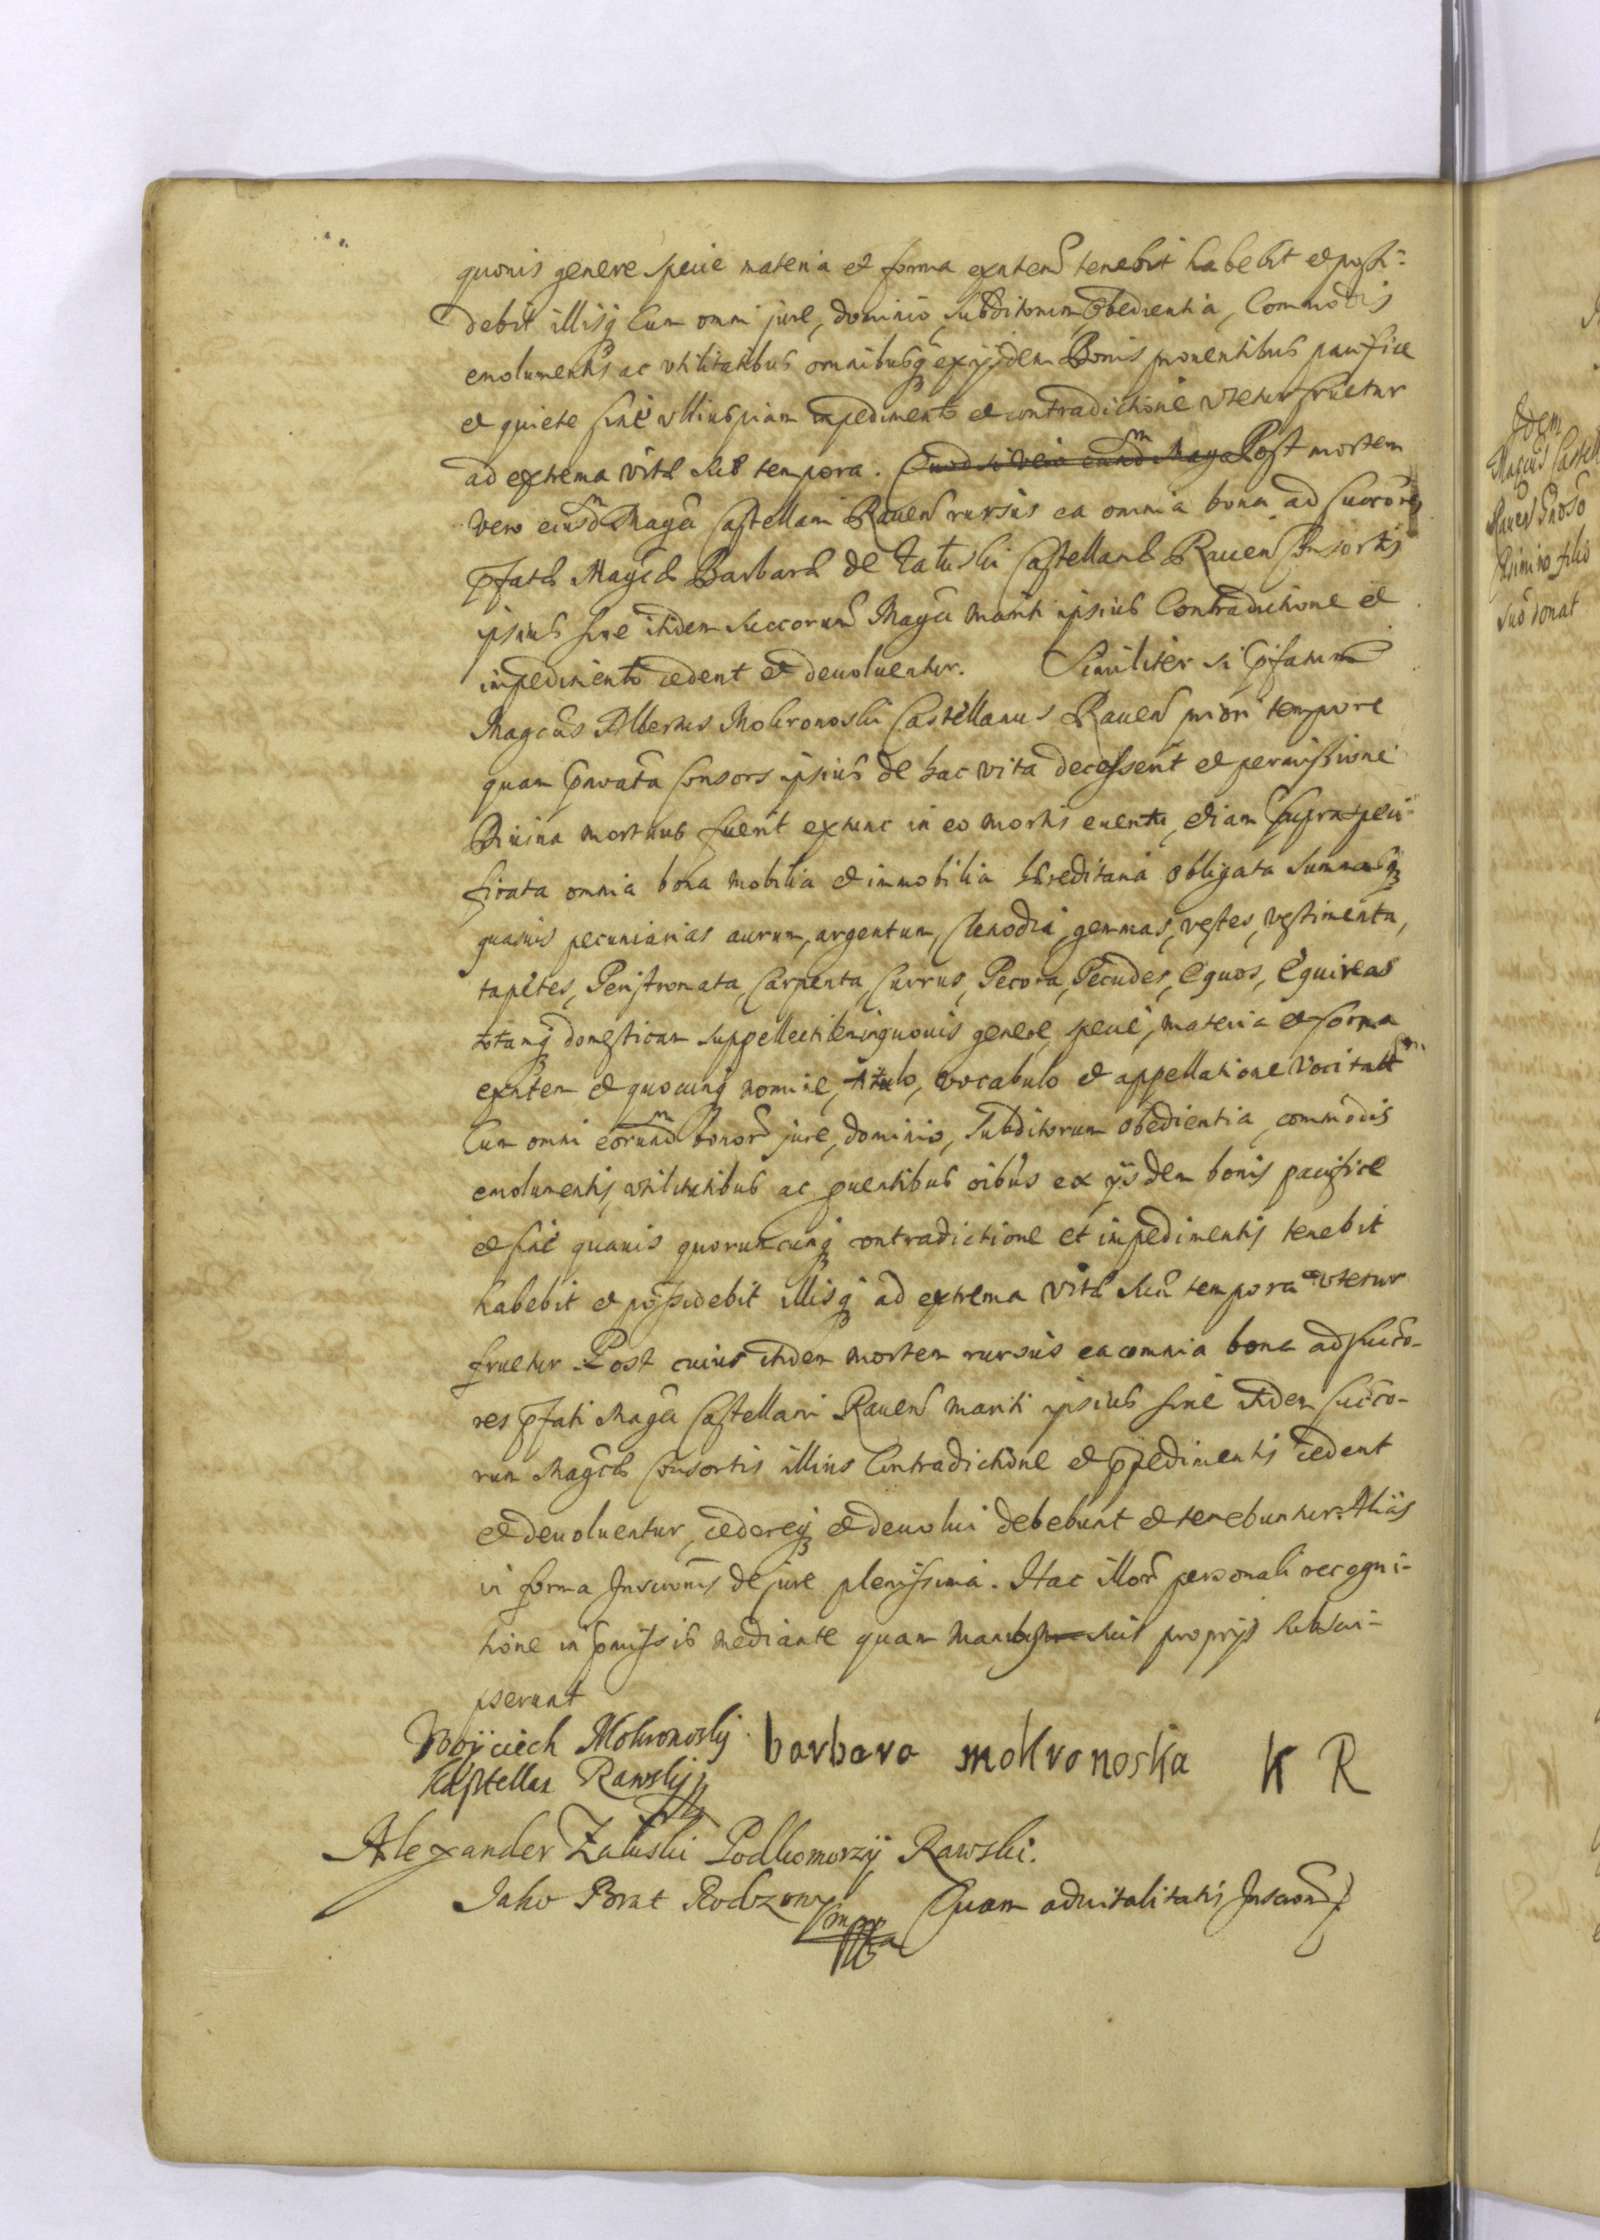 quovis genere specie materia et forma exnten tenebit habebit et possi-
debit illisq cum omni jure, dominio, subditorum obedientia, commodis
emolumentis ac utilitatibus omnibusq ex ijsdem Bonis provenentibus pacifice
et quiete sine ulliuspiam impedimento et contradictione utetur fruetur
ad extrema vitæ suæ tempora. Quod si vero eundm Magc Post mortem
vero eiusdm Magci Castellani Raven rursus ea omnia bona ad succores
pfatæ Magcæ Barbaræ de Załuski Castellanæ Raven Consortis
ipsius sine itidem succorum Magci Mariti ipsius Contradictione et
impedimento cedent et devolventur. Similiter si pfatum
Magcus Albertus Mokronoski Castellanus Raven priori tempore
quam pnvata Consors ipsius de hac vita decesserit et permissione
Divina mortuus fuerit extunc in eo mortis eventu, etiam supra speci-
ficata omnia bona mobilia et immobilia hæreditaria obligata summasq
quasvis pecuniarias aurum, argentum, Clenodia, gemmas, vestes, vestimenta,
tapetes, Peristromata, Carpenta, Currus, Pecora, Pecudes, Equos, Equireas
totamq domesticam suppellectilem inquovis genere, specie, materia et forma
exnten et quocunq nomine, titulo, vocabulo et appellatione vocitatt
Cum omni eorundm bonor jure, dominio, subditorum obedientia, commodis
emolumentis, utilitatibus ac pventibus oibus ex ijsdem bonis pacifice
et sine quavis quoruncunq contradictione et impedimentis tenebit
habebit et possidebit illisq ad extrema vitæ suæ tempora utetur
fruetur Post cuius itidem mortem rursus ea omnia bona ad succo-
res pfati Magci Castellani Raven mariti ipsius sine itidem succo-
rum Magcæ Consortis illius Contradictione et ppedimentis cedent
et devolventur, cedereq et devolvi debebunt et tenebuntur. Alijs
in forma Inscronis de jure plenissima. Hac illor personali recogni-
tione in pmissis mediante quam manibus suis proprijs subscri-
pserunt
Woyciech Mokronosky barbara mokronoska K R
Kasztellan Rawsky
Alexander Załuski Podkomorzy Rawski.
Jako Brat Rodzony mpp Quam advitalitatis Inscron
Idem
Magcus Castell
Raven Gnoso
Casimiro filio
suo donat